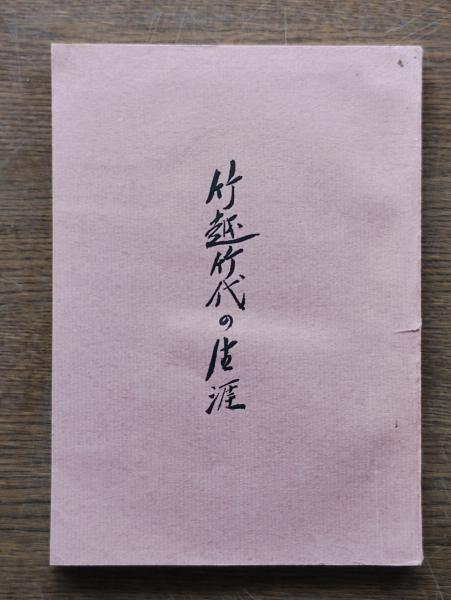 竹越竹代の生涯